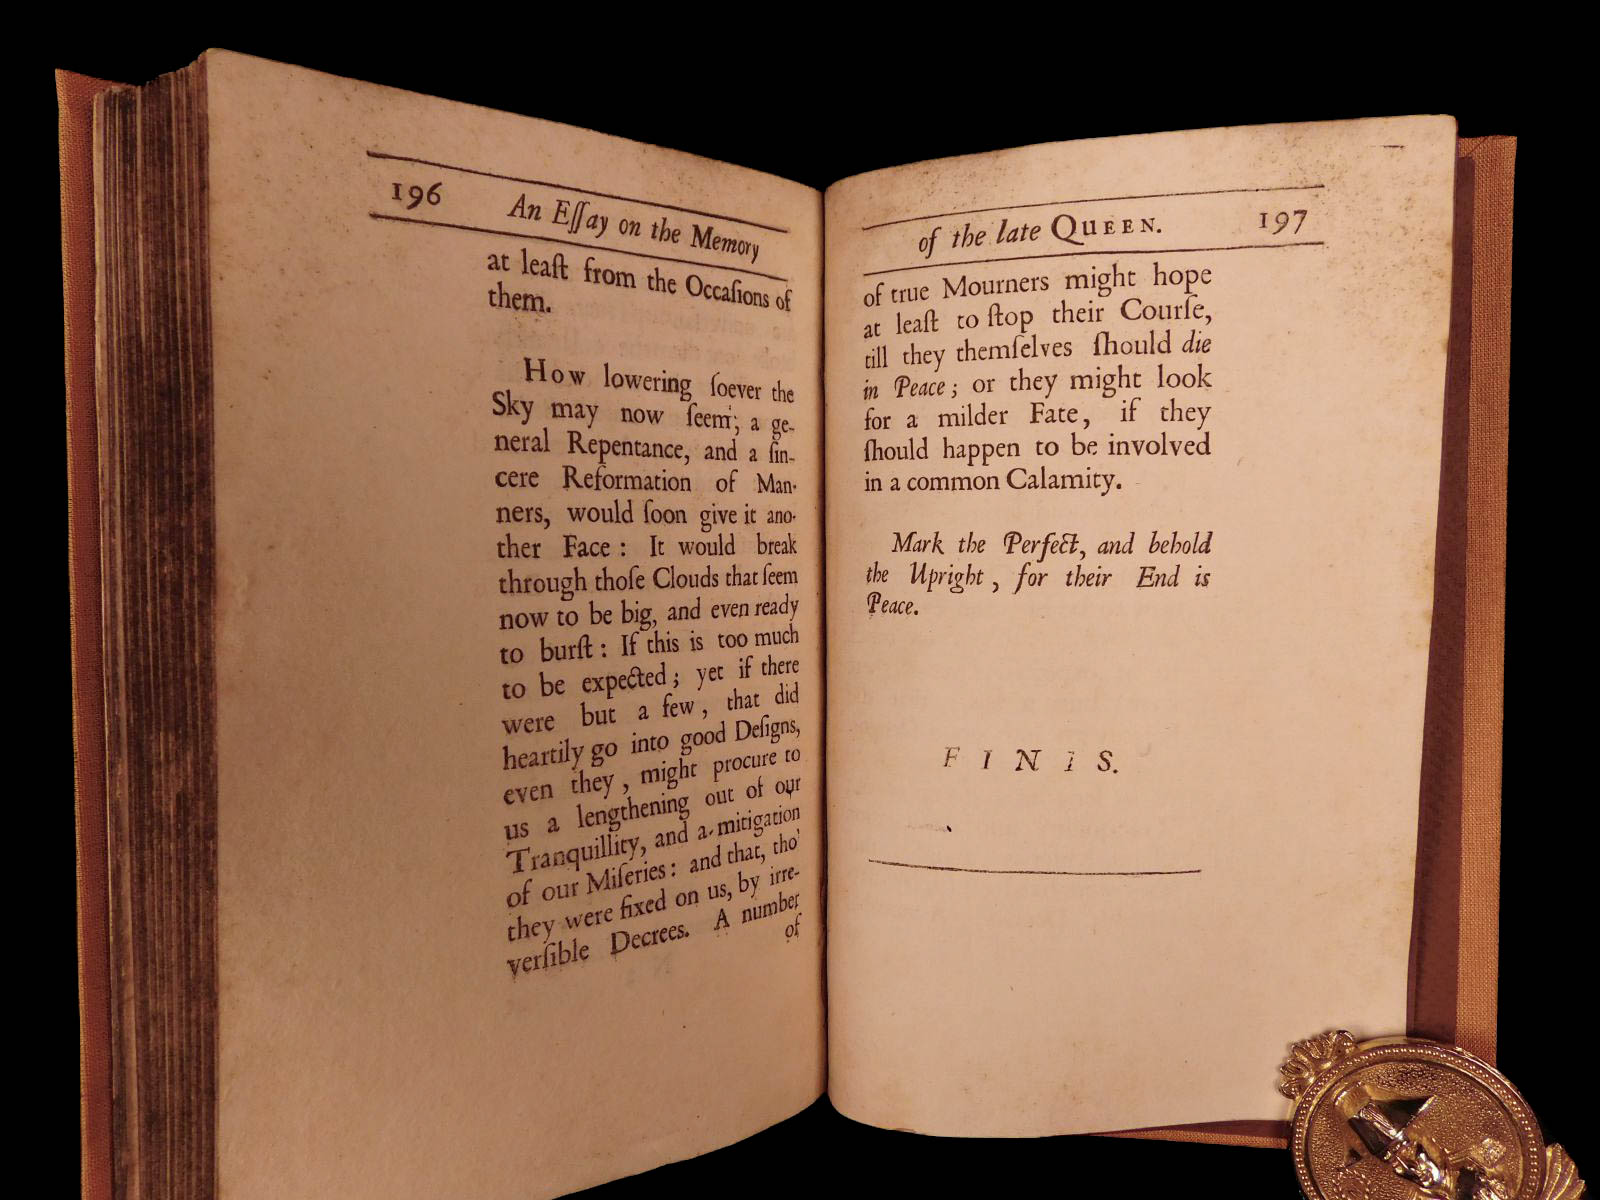 196 An Eſſay on the Memory
at leaſt from the Occaſions of
them.
How lowering ſoever the
Sky may now ſeem; a ge-
neral Repentance, and a ſin-
cere Reformation of Man-
ners, would ſoon give it ano-
ther Face : It would break
through thoſe Clouds that ſeem
now to be big, and even ready
to burſt : If this is too much
to be expected ; yet if there
were but a few , that did
heartily go into good Deſigns,
even they , might procure to
us a lengthening out of our
Tranquillity, and a mitigation
of our Miſeries : and that, tho'
they were fixed on us, by irre-
verſible Decrees. A number
of
of the late QUEEN. 197
of true Mourners might hope
at leaſt to ſtop their Courſe,
till they themſelves ſhould die
in Peace ; or they might look
for a milder Fate, if they
ſhould happen to be involved
in a common Calamity.
Mark the Perfect, and behold
the Upright , for their End is
Peace.
F I N I S.